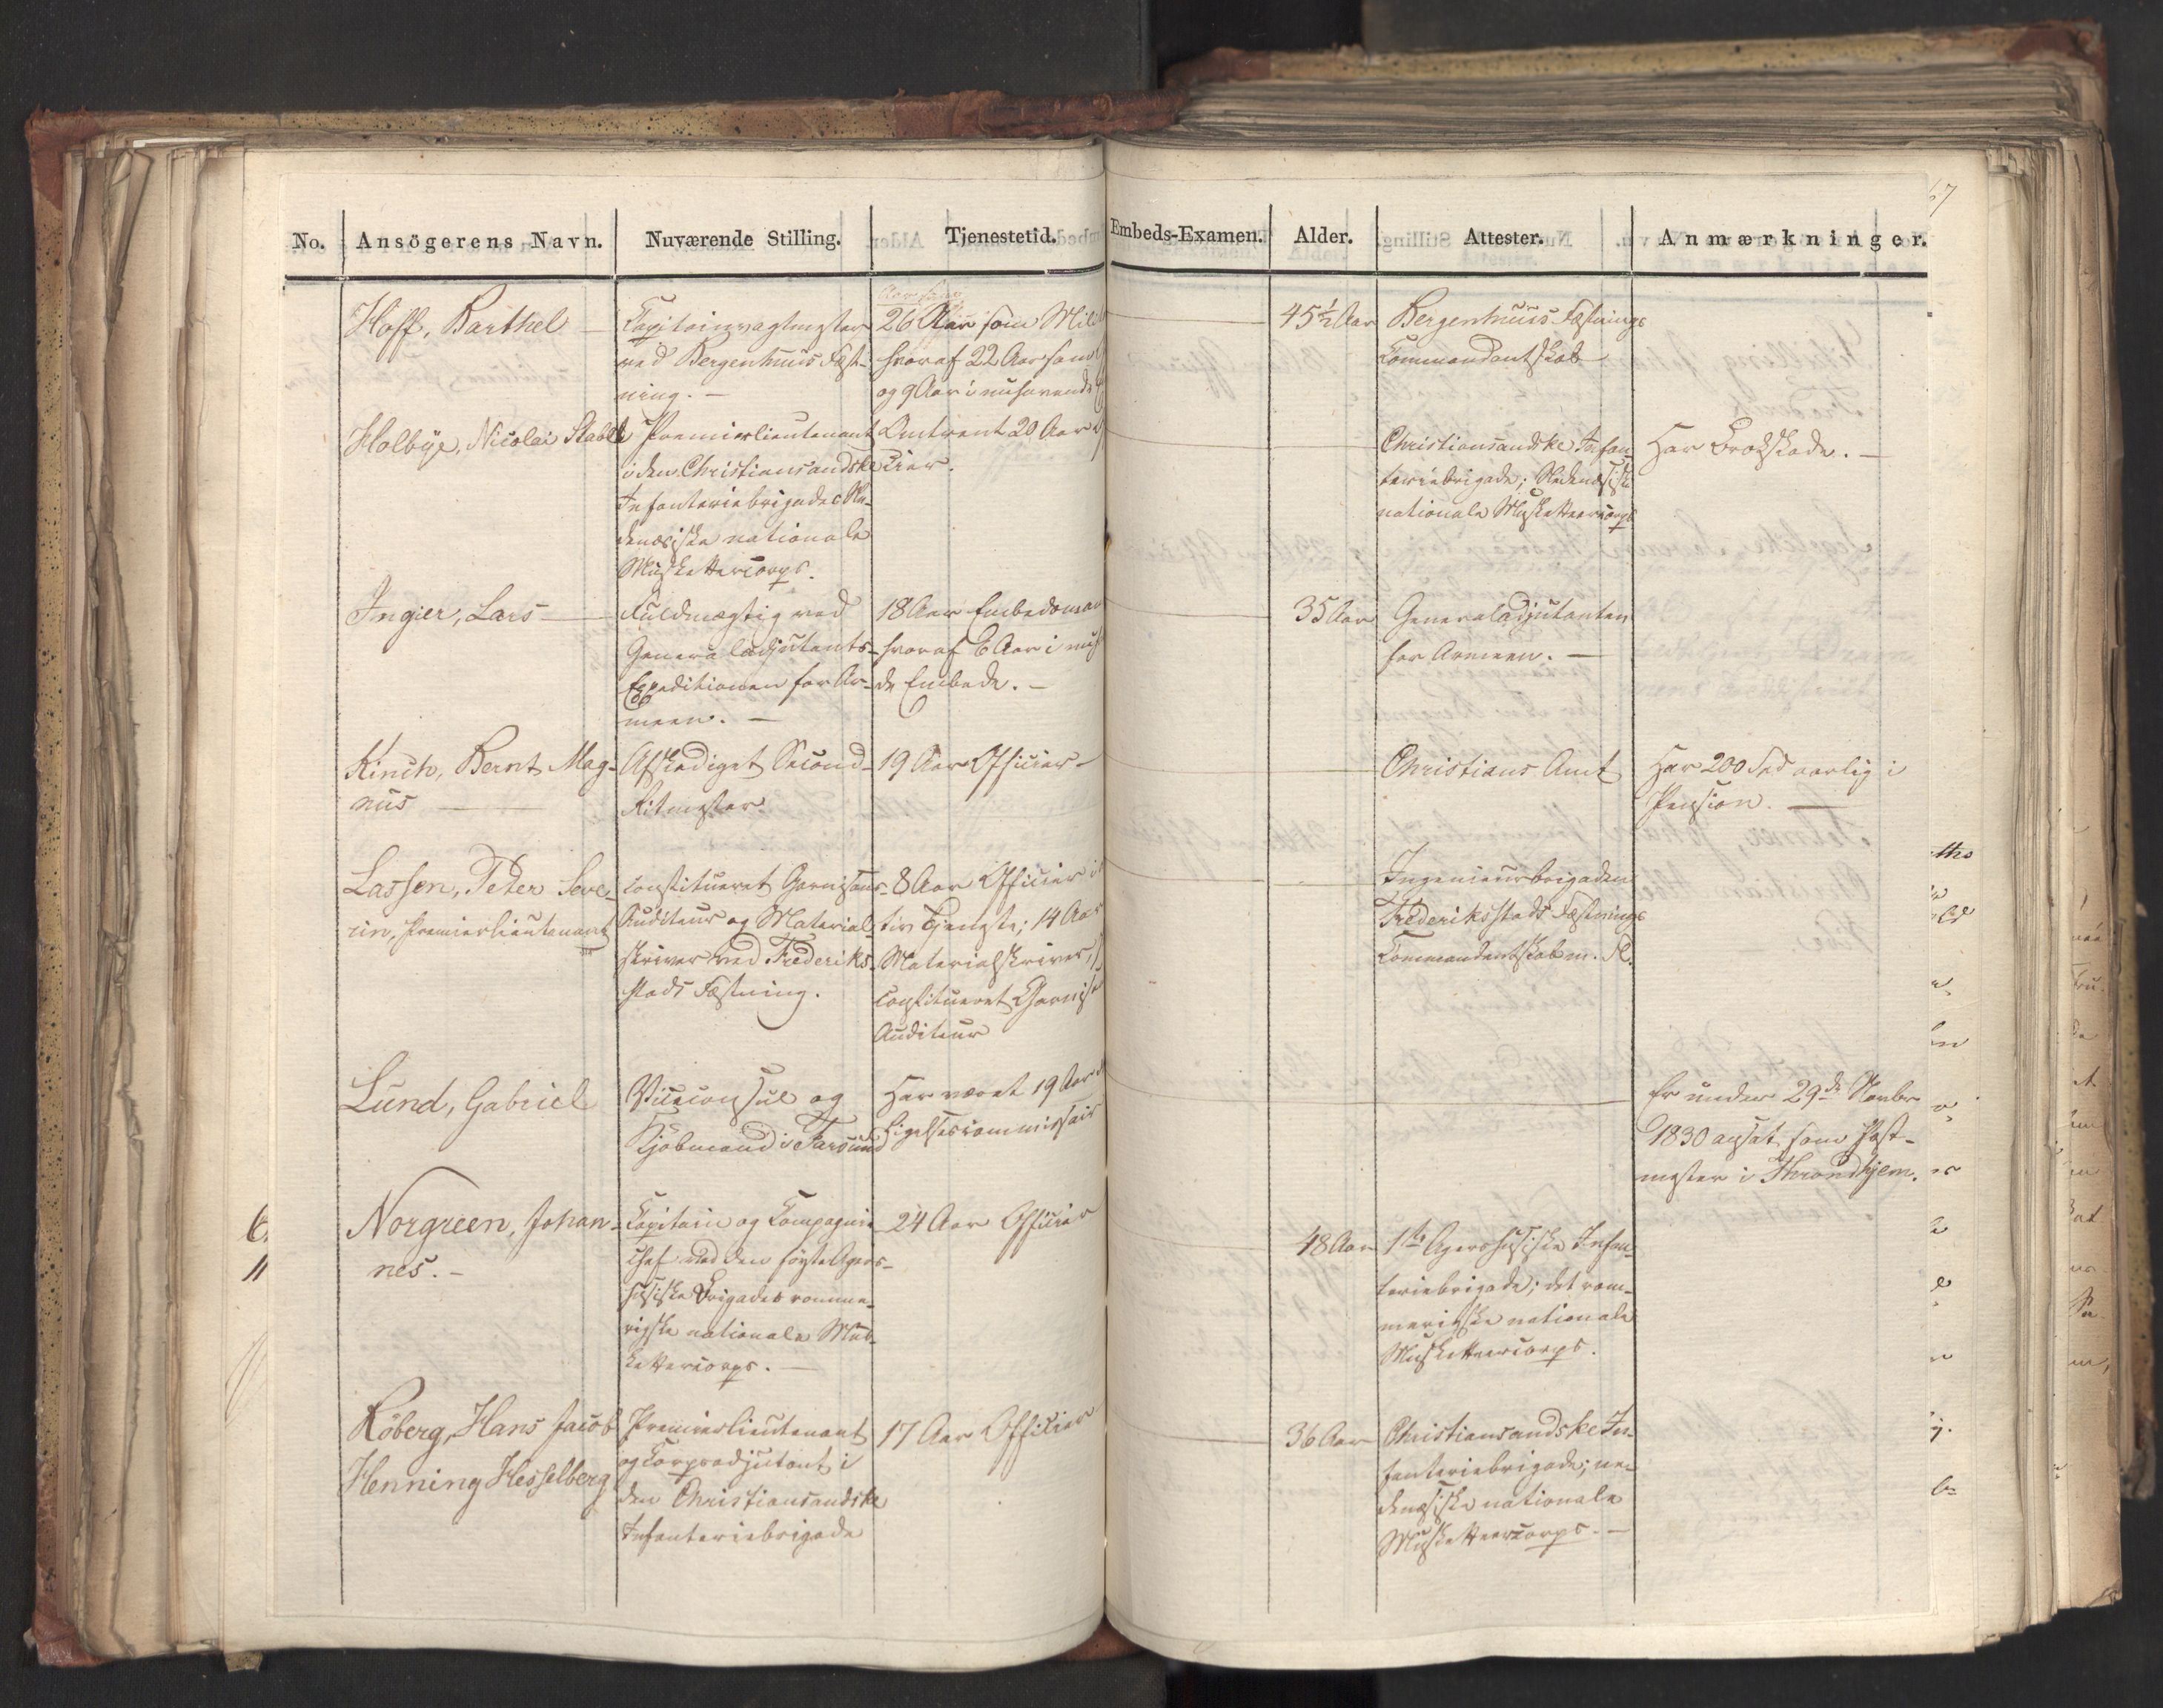 67
No. Ansögerens Navn. Nuværende Stilling. Tjenestetid. Embeds-Examen. Alder. Attester. Anmærkninger.
Hoff, Barthel —
Capitainvagtmester
ved Bergenhuus Fæst-
ning. —
26 Aar som Mili
hvoraf 22 Aar som
og 9 Aar i nuhavende
45½ Aar
Bergenhuus Fæstnings
Commandantskab
Holbye, Nicolai Stabell
Premierlieutenant
i den Christiansandske
Infanteriebrigades Ne-
denæsiske nationale
Musketteercorps.
Omtrent 20 Aar
cier.
Christiansandske Infan-
teriebrigade; Nedenæsiske
nationale Musketteercorps
Har Brokskade. —
Ingier, Lars —
Fuldmægtig ved
Generaladjutants-
Expeditionen for Ar-
meen. —
18 Aar Embedsman
hvoraf 6 Aar i nuh
de Embede. —
35 Aar
Generaladjutanten
for Armeen. —
Kinch, Bernt Mag-
nus —
Afskediget Second-
Ritmester.
19 Aar Officier —
Christians Amt
Har 200 Spd aarlig i
Pension. —
Lassen, Peter Seve-
rin, Premierlieutenant
constitueret Garnisons-
Auditeur og Material-
skriver ved Frederiks-
stads Fæstning.
8 Aar Officier i
tiv Tjeneste; 14 Aar
Materialskriver,
constitueret Garnis
Auditeur
Ingenieurbrigaden
Frederiksstads Fæstnings
Commandantskab m. Fl.
Lund, Gabriel
Viceconsul og
Kjöbmand i Farsund
Har været 19 Aar
ligelsescommissair
Er under 29de Novbr
1830 ansat som Post-
mester i Throndhjem.
Norgreen, Johan-
nes. —
Capitain og Compagnie
chef ved den förste Agers-
husiske Brigades romme-
rigske nationale Mus-
ketteercorps. —
24 Aar Officier
48 Aar
1ste Agershusiske Infan-
teriebrigade; det rom-
merigske nationale
Musketteercorps.
Röberg, Hans Jacob
Henning Hesselberg
Premierlieutenant
og Corpsadjutant i
den Christiansandske
Infanteriebrigade
17 Aar Officier
36 Aar
Christiansandske In-
fanteriebrigade; ne-
denæsiske nationale
Musketteercorps. —